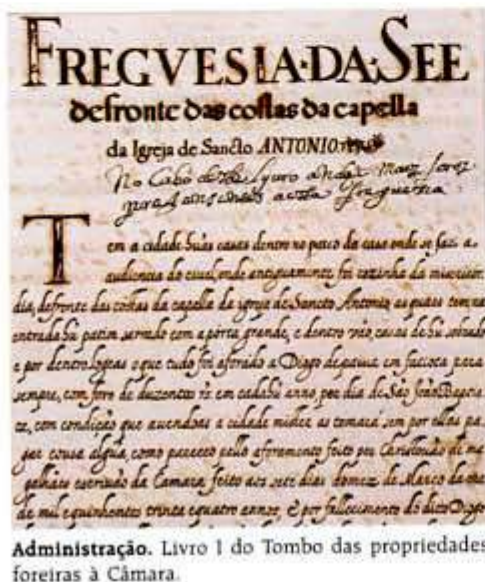 FREGVESIA·DA·SEE
defronte das costas da capella
da Igreja de Sancto ANTONIO
No Cabo deste Lyuro andão mais foros
Tem a cidade hũas casas dentro no pateo da casa onde se faz a
audiencia do ciuel, onde antiguamente foi cozinha da misericor
dia, defronte das costas da capella da igreja de Sancto Antonio, as quaes tem na
entrada hũ patim serrado com a porta grande, e dentro tres casas de hũ sobrado
e por dentro logeas o que tudo foi aforado a Diogo de paiua em fatiota pera
sempre, com foro de duzentos rs̃ em cadahũ anno, por dia de São João Baptis
ta, com condição que auendoas a cidade mister as tomará sem por ellas pa
gar cousa algũa, como pareceo pello aforamento feito por Christouão de ma
galhães escriuão da Camara, feito aos sete dias do mez de Março da era
de mil e quinhentos trinta e quatro annos, E por fallecimento do dito Diogo
Administração. Livro I do Tombo das propriedades
foreiras à Câmara.